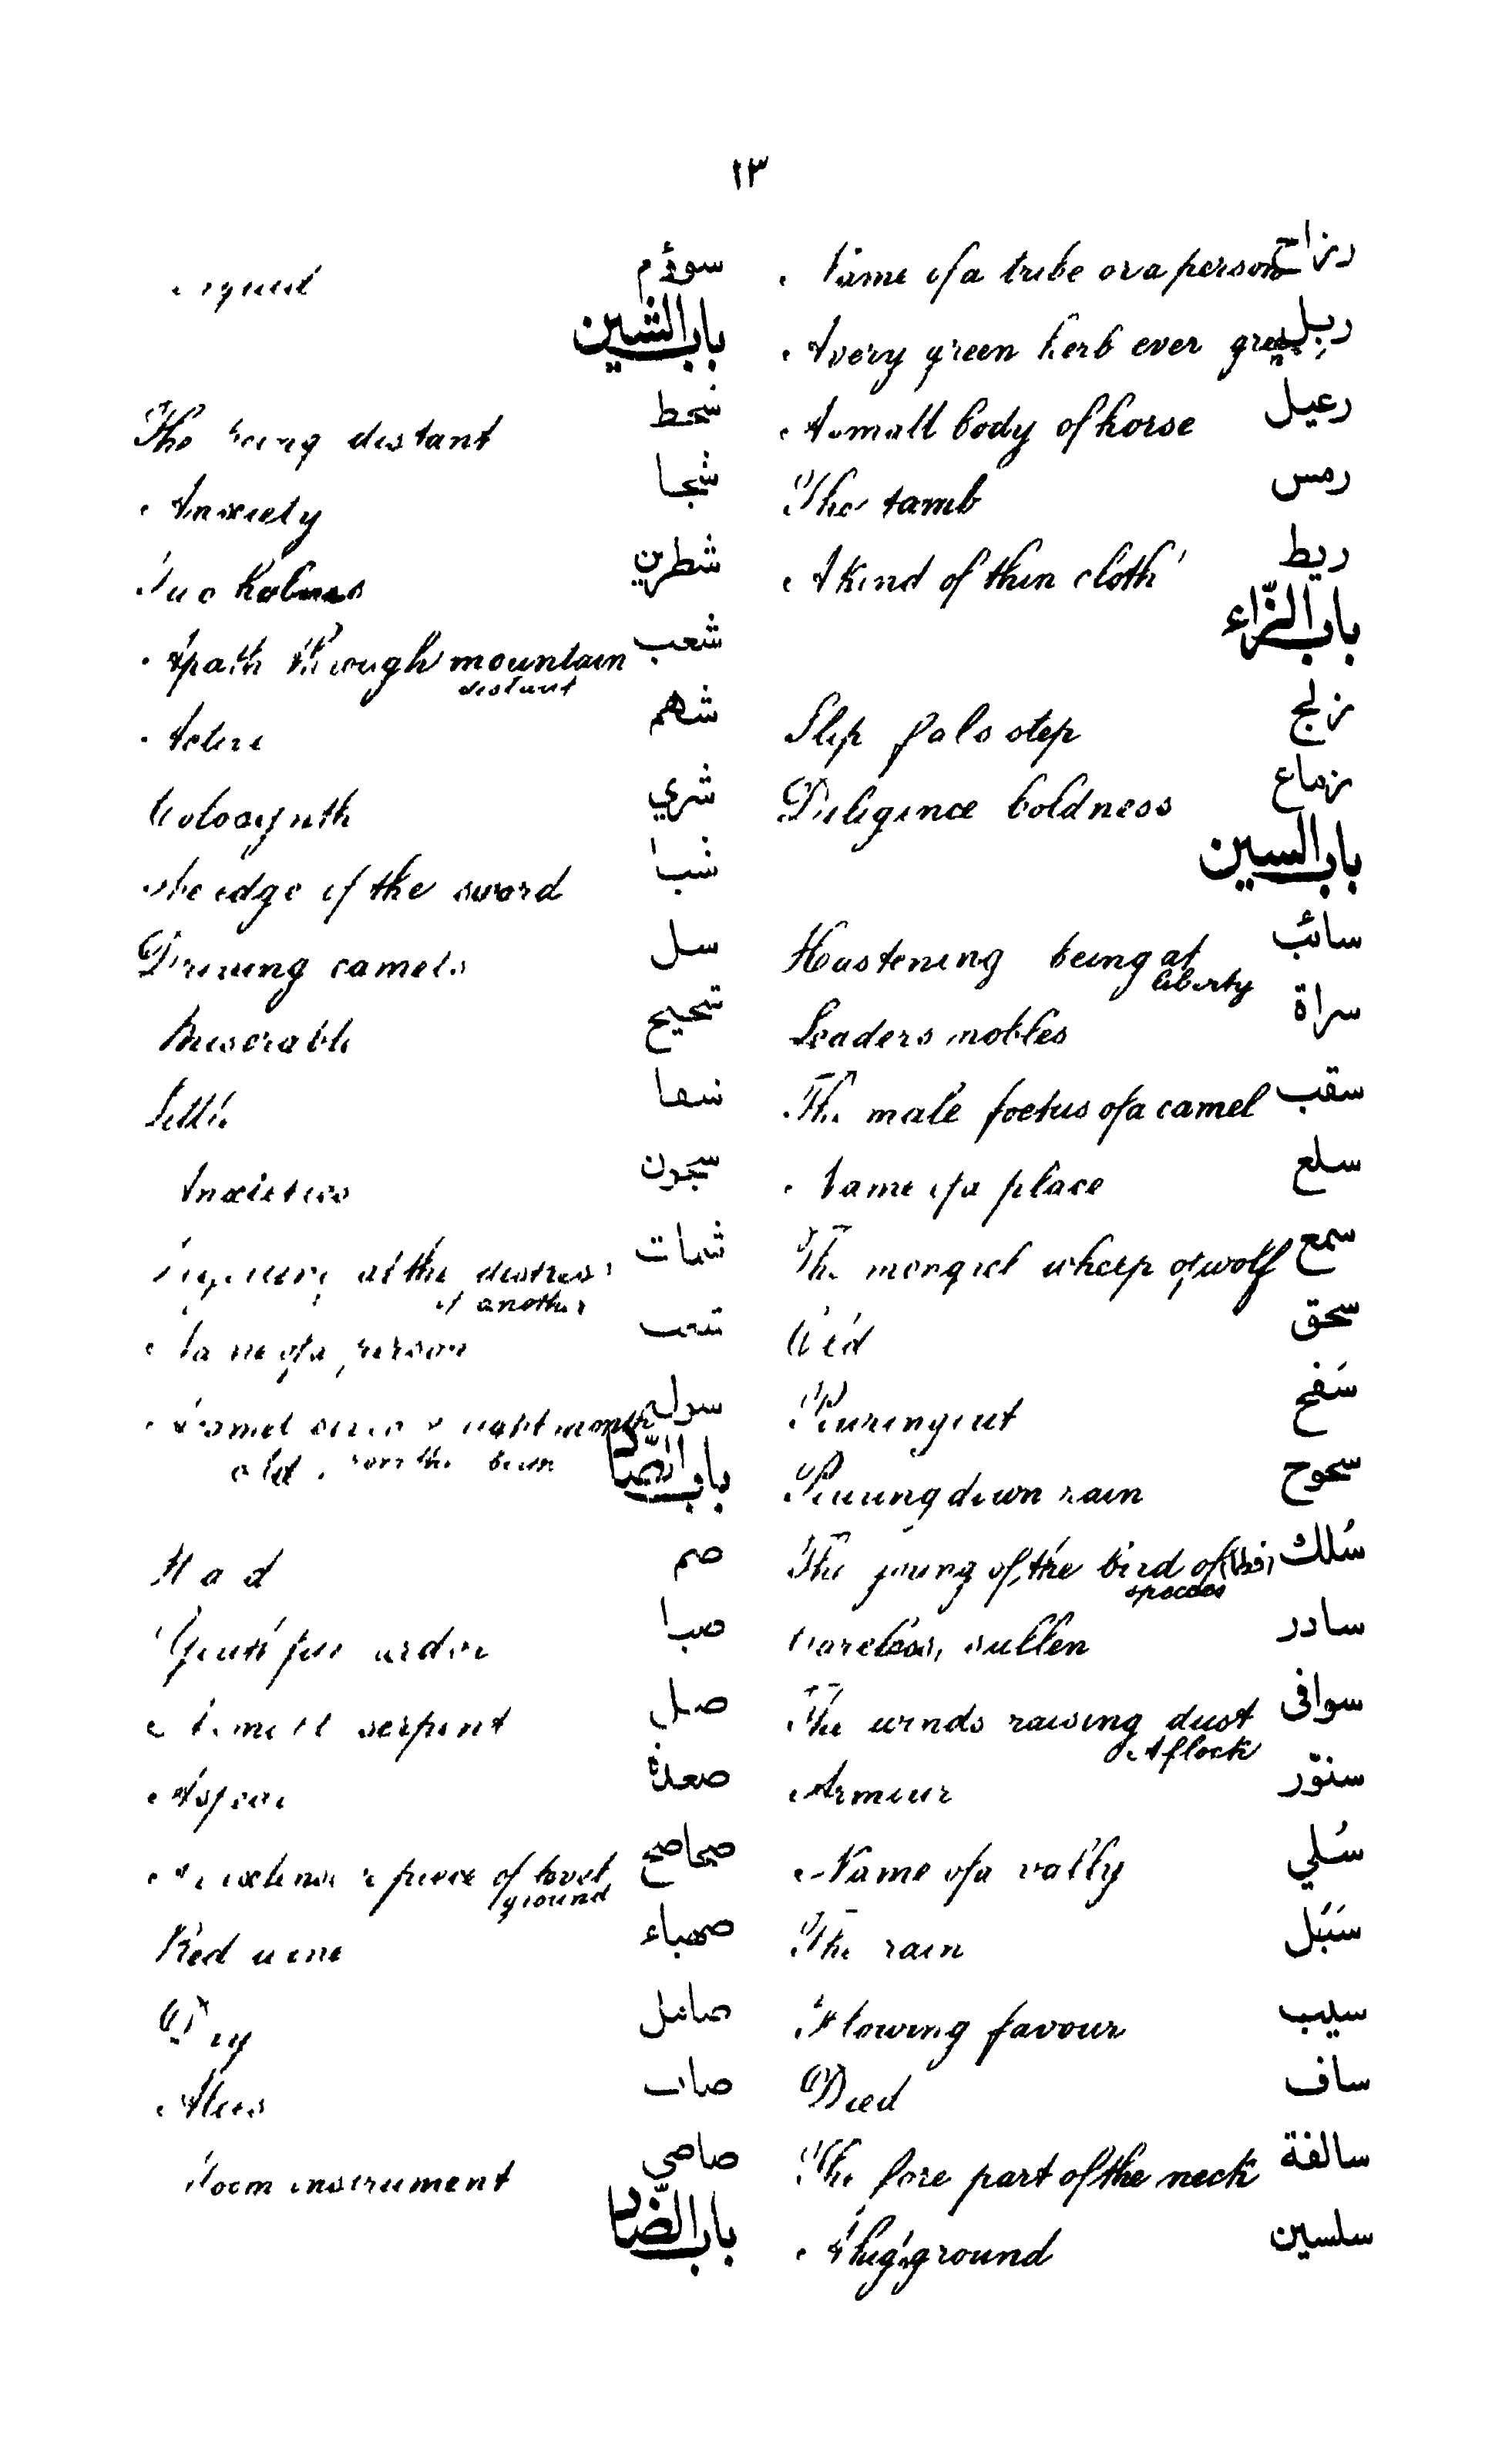 ١٣
رزاح Name of a tribe or a person
ربل A very green herb ever green
رعيل A small body of horse
رمس The tamb
ريط A kind of thin cloth
باب الزّاء
زلج Slip fals step
زماع Diligence boldness
باب السين
سائب Hastening being at
liberty
سراة Leaders nobles
سقب The male foetus of a camel
سلع Name of a place
سمع The mongrel whelp of wolf
سحق
سَفح Pouring out
سحوح Pouring down rain
سُلك The young of the bird of (قطا)
species
سادر Careless, sullen
سوافى The winds raising dust
A flock
سنوّر Armour
سُلي Name of a vally
سَبَل The rain
سيب Flowing favour
ساف Died
سالفة The fore part of the neck
سلسين ground
سوؤم
باب الشين
شحط The being distant
شجا Anxiety
شطرين Two
شعب A path through mountain
distant
شهم Active
شري Colocynth
شبا The edge of the sword
سل Driving camels
شحيح Miserable
سفا Little
سجون Anxieties
شمات at the distress
of another
شعب Name of a person
Camel seven or eight month
old born
باب الصّاد
صم Had
صبا Youthful ardor
صل A small serpent
صعدة A spear
صحاصح piece of level
ground
صهباء Red wine
Dry
صاب Aloes
صاصي Loom instrument
باب الضّاد